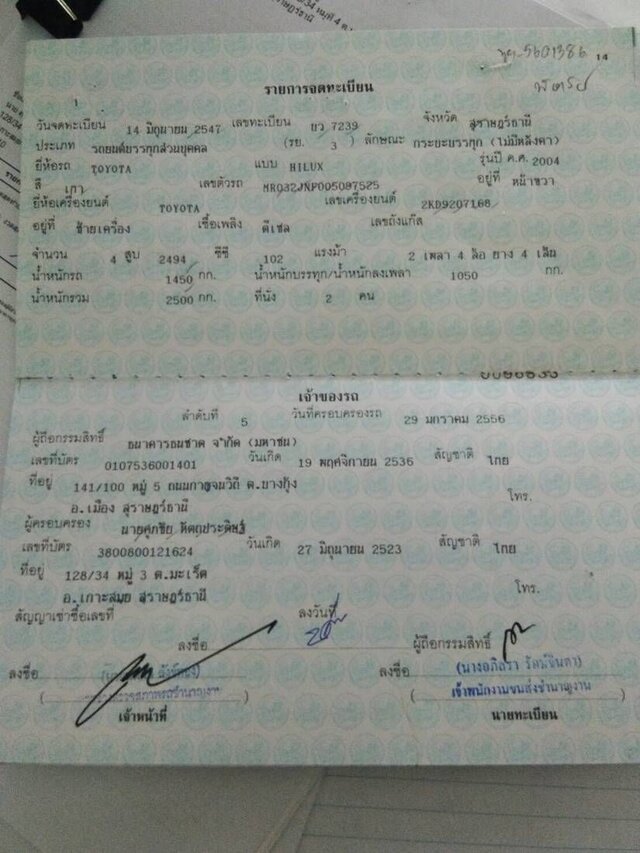 14
รายการจดทะเบียน
วันจดทะเบียน 14 มิถุนายน 2547 เลขทะเบียน บว 7239 จังหวัด สุราษฎร์ธานี
ประเภท รถยนต์บรรทุกส่วนบุคคล (รย. 3 ) ลักษณะ กระบะบรรทุก (ไม่มีหลังคา)
ยี่ห้อรถ TOYOTA แบบ HILUX รุ่นปี ค.ศ. 2004
สี เทา เลขตัวรถ MR032JNP005087525 อยู่ที่ หน้าขวา
ยี่ห้อเครื่องยนต์ TOYOTA เลขเครื่องยนต์ 2KD9207168
อยู่ที่ ซ้ายเครื่อง เชื้อเพลิง ดีเซล เลขถังแก๊ส
จำนวน 4 สูบ 2494 ซีซี 102 แรงม้า 2 เพลา 4 ล้อ ยาง 4 เส้น
น้ำหนักรถ 1450 กก. น้ำหนักบรรทุก/น้ำหนักลงเพลา 1050 กก.
น้ำหนักรวม 2500 กก. ที่นั่ง 2 คน
เจ้าของรถ
ลำดับที่ 5 วันที่ครอบครองรถ 29 มกราคม 2556
ผู้ถือกรรมสิทธิ์ ธนาคารธนชาต จำกัด (มหาชน)
เลขที่บัตร 0107536001401 วันเกิด 19 พฤศจิกายน 2536 สัญชาติ ไทย
ที่อยู่ 141/100 หมู่ 5 ถนนกาญจนวิถี ต.บางกุ้ง
อ.เมือง สุราษฎร์ธานี โทร.
ผู้ครอบครอง นายศุภชัย หิตถประดิษฐ์
เลขที่บัตร 3800800121624 วันเกิด 27 มิถุนายน 2523 สัญชาติ ไทย
ที่อยู่ 128/34 หมู่ 3 ต.มะเร็ต
อ.เกาะสมุย สุราษฎร์ธานี โทร.
สัญญาเช่าซื้อเลขที่ ลงวันที่
ลงชื่อ ผู้ถือกรรมสิทธิ์
ลงชื่อ ลงชื่อ
เจ้าพนักงานขนส่งชำนาญงาน
เจ้าหน้าที่ นายทะเบียน